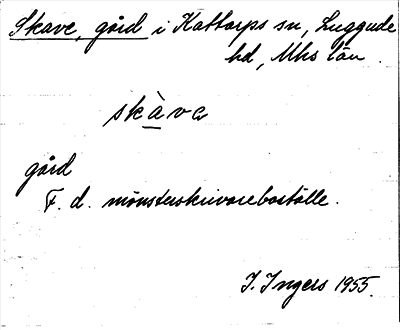 Skave, gård i Kattarps sn, Luggude
hd, Mhs län.
skàva
gård
F. d. mönsterskrivareboställe.
I. Ingers 1955.